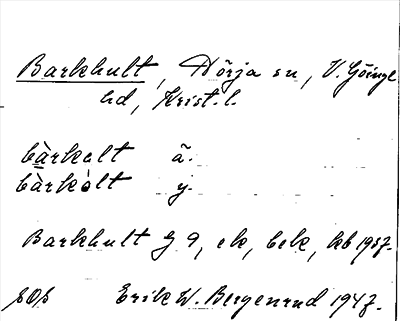 Barkhult, Hörja sn, V. Göinge
hd, Krist. l.
bàrkalt ä.
bàrkòlt y.
Barkhult J 9, ek, bek, kb 1957.
SOS Erik W. Bergenrud 1947.